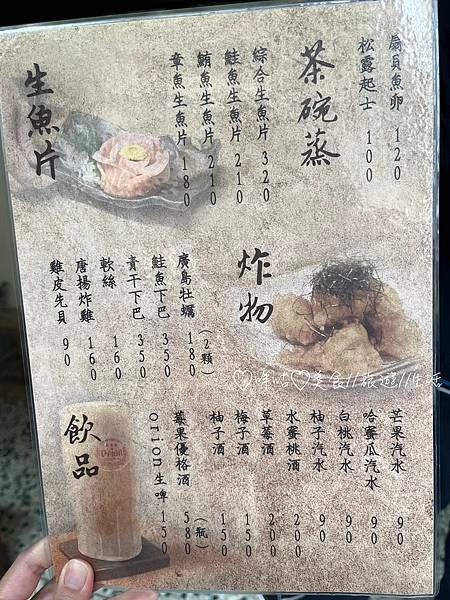 茶碗蒸
扇貝魚卵 120
松露起士 100
生魚片
綜合生魚片 320
鮭魚生魚片 210
鮪魚生魚片 210
章魚生魚片 180
炸物
廣島牡蠣 180 (2顆)
鮭魚下巴 350
青干下巴 350
軟絲 160
唐揚炸雞 160
雞皮先貝 90
飲品
芒果汽水 90
哈蜜瓜汽水 90
白桃汽水 90
柚子汽水 90
水蜜桃酒 200
草莓酒 200
梅子酒 150
柚子酒 150
蘋果優格酒 580 (瓶)
orion生啤 150
Orion
美食//旅遊//生活